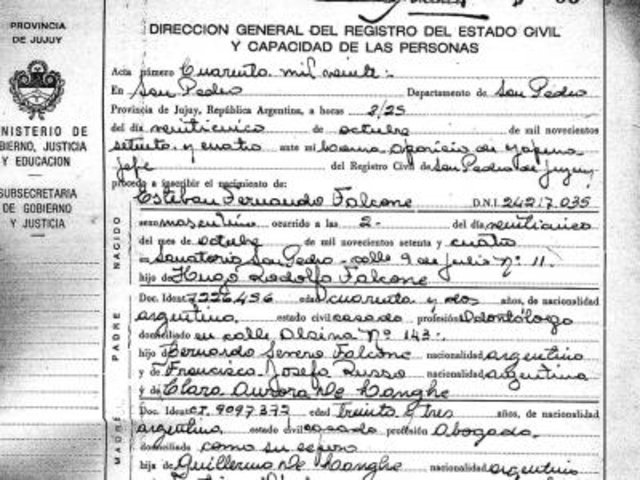 PROVINCIA
DE JUJUY
MINISTERIO DE
GOBIERNO, JUSTICIA
Y EDUCACION
SUBSECRETARIA
DE GOBIERNO
Y JUSTICIA
DIRECCION GENERAL DEL REGISTRO DEL ESTADO CIVIL
Y CAPACIDAD DE LAS PERSONAS
Acta número Cuarenta mil veinte.-
En San Pedro Departamento de San Pedro
Provincia de Jujuy, República Argentina, a horas 2/25
del día veinticinco de octubre de mil novecientos
setenta y cuatro ante mi aparicio de
jefe del Registro Civil de San Pedro de Jujuy
procedo a inscribir el nacimiento de:
Esteban Fernando Falcone D.N.I. 24217.035
NACIDO
sexo masculino ocurrido a las 2- del día veinticinco
del mes de octubre de mil novecientos setenta y cuatro
en Sanatorio San Pedro - calle 9 de julio nº 11.
hijo de Hugo Rodolfo Falcone
PADRE
Doc. Ident. 7226.496 edad cuarenta y dos años, de nacionalidad
argentina estado civil casado profesión Odontólogo
domiciliado en calle Alsina Nº 143.-
hijo de Bernardo Severo Falcone nacionalidad argentino
y de Francisca Josefa Russo nacionalidad argentina
y de Clara Aurora De Langhe
MADRE
Doc. Ident. CI. 9097.372 edad treinta y tres años, de nacionalidad
argentina estado civil casada profesión Abogada.
domiciliada como su esposo
hija de Guillermo De Langhe nacionalidad argentino